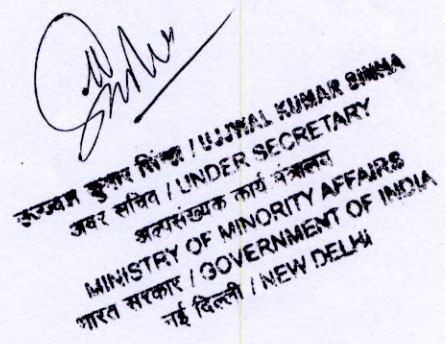 उज्ज्वल कुमार सिन्हा / UJJWAL KUMAR SINHA
अवर सचिव / UNDER SECRETARY
अल्पसंख्यक कार्य मंत्रालय
MINISTRY OF MINORITY AFFAIRS
भारत सरकार / GOVERNMENT OF INDIA
नई दिल्ली / NEW DELHI